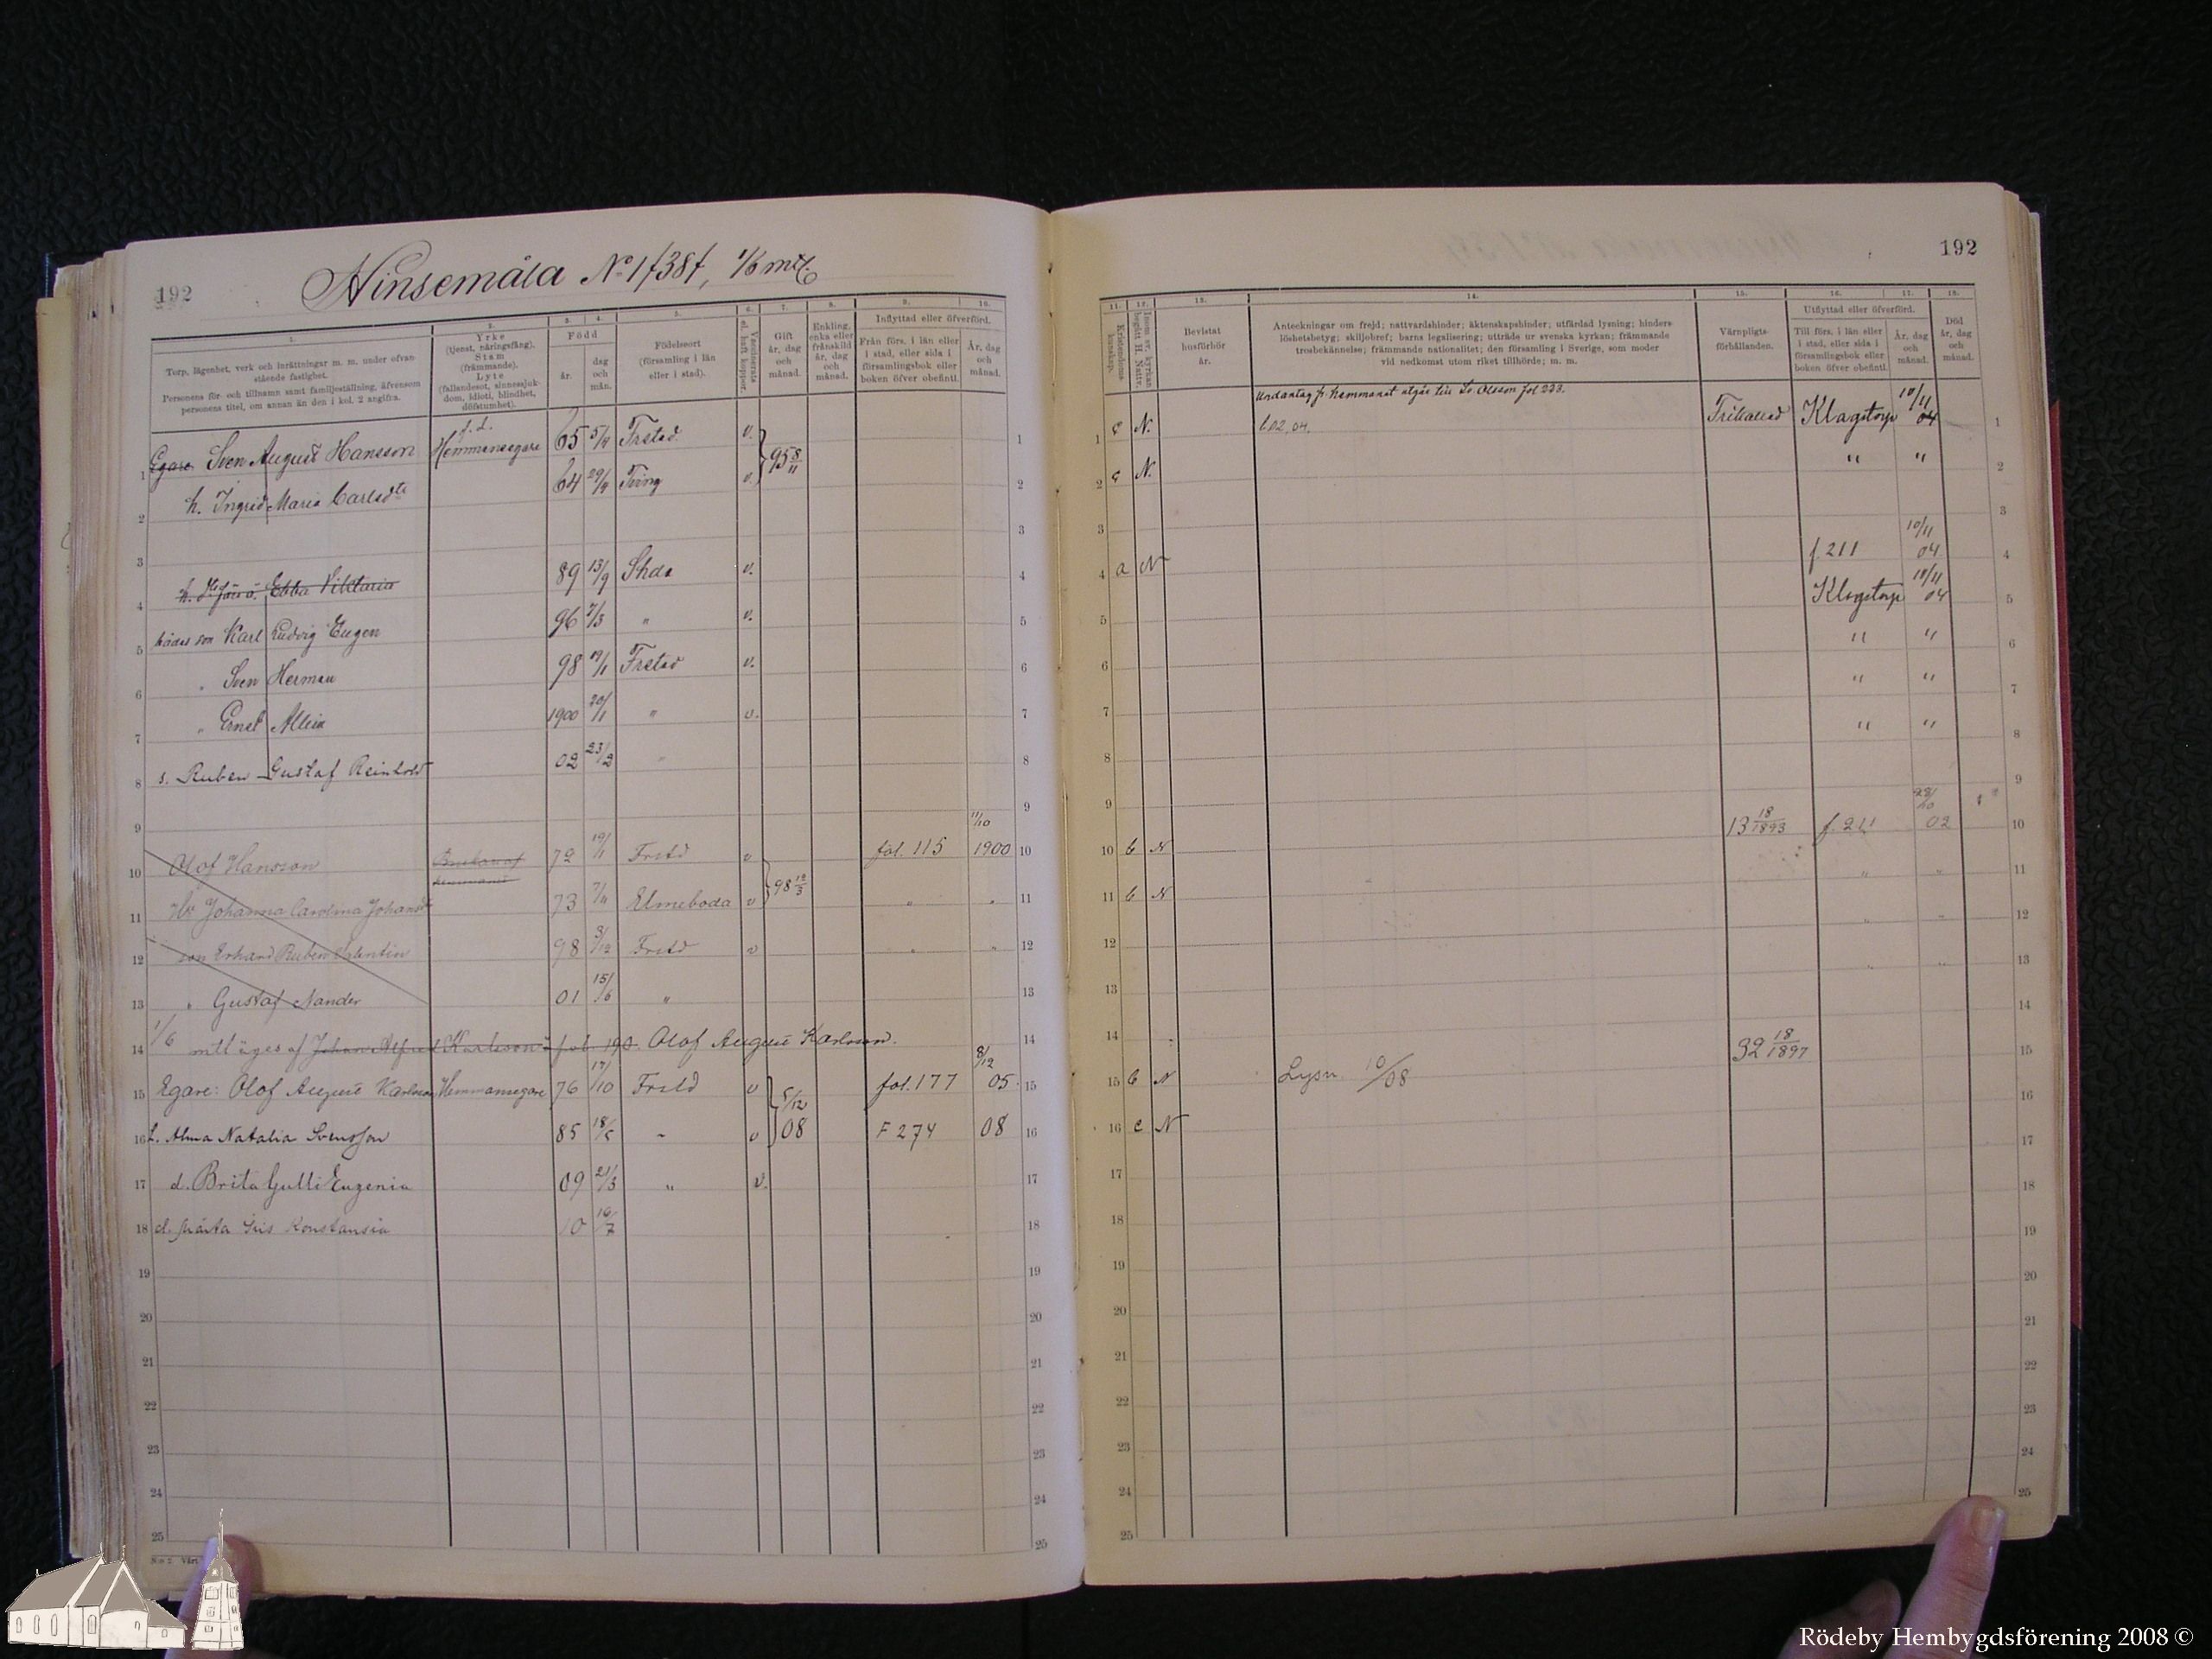 192
Hinsemåla No 1
1.
Torp, lägenhet, verk och inrättningar m. m. under ofvan-
stående fastighet.
Personens för- och tillnamn samt familjeställning, äfvensom
personens titel, om annan än den i kol. 2 angifna.
2.
Yrke
(tjenst, näringsfång).
Stam
(främmande).
Lyte
(fallandesot, sinnessjuk-
dom, idioti, blindhet,
döfstumhet).
3. 4.
Född
år.
dag
och
mån.
5.
Födelseort
(församling i län
eller i stad).
6.
Vaccinerats
el. haft koppor.
7.
Gift
år, dag
och
månad.
8.
Enkling,
enka eller
frånskild
år, dag
och
månad.
9. 10.
Inflyttad eller öfverförd.
Från förs. i län eller
i stad, eller sida i
församlingsbok eller
boken öfver obefintl.
År, dag
och
månad.
1 Egare Sven August Hansson f.d. Hemmansegare 65 5/9 Frstad v. 95 8/11 1
2 h. Ingrid Maria Carlsdtr 64 29/9 Tving v. 2
3 3
4 Ebba Viktoria 89 13/9 Shda v. 4
5 bådas son Karl Ludvig Eugen 96 7/3 " v. 5
6 " Sven Herman 98 19/1 Frstad v. 6
7 " Ernst Allein 1900 20/1 " v. 7
8 s. Ruben Gustaf Reinhold 02 23/2 " 8
9 9
10 Olof Hansson Brukare af hemmanet 72 19/1 Frstd v fol. 115 11/10 1900 10
11 Hu Johanna Carolina Johansdr 73 7/11 Elmeboda v 98 12/3 " " 11
12 son Erhard Ruben Valentin 98 3/12 Frstd v " " 12
13 " Gustaf Nander 01 15/6 " 13
14 1/6 mtl äges af Johan Alfred Karlsson fol 190. Olof August Karlsson. 14
15 Egare: Olof August Karlsson Hemmansegare 76 17/10 Frstd v fol. 177 8/12 05 15
16 h. Alma Natalia Svensson 85 18/5 " v 5/12 08 F 274 08 16
17 d. Brita Gulli Eugenia 09 21/3 " v. 17
18 d. Märta Iris Konstansia 10 16/7 18
19 19
20 20
21 21
22 22
23 23
24 24
25 25
192
11.
Kristendoms-
kunskap.
12.
Inom sv. kyrkan
begått H. Nattv.
13.
Bevistat
husförhör
år.
14.
Anteckningar om frejd; nattvardshinder; äktenskapshinder; utfärdad lysning; hinders-
löshetsbetyg; skiljobref; barns legalisering; utträde ur svenska kyrkan; främmande
trosbekännelse; främmande nationalitet; den församling i Sverige, som moder
vid nedkomst utom riket tillhörde; m. m.
15.
Värnpligts-
förhållanden.
16. 17.
Utflyttad eller öfverförd.
Till förs. i län eller
i stad, eller sida i
församlingsbok eller
boken öfver obefintl.
År, dag
och
månad.
18.
Död
år, dag
och
månad.
Undantag fr. hemmanet utgår till Sv. Olsson fol 223.
1 c N. l.02.04. Frikallad Klagstorp 10/11 04 1
2 c N. " " 2
3 3
4 a N f. 211 10/11 04 4
5 Klagstorp 10/11 04 5
6 " " 6
7 " " 7
8 " " 8
9 9
10 b N 13 18/1893 f. 211 28/10 02 10
11 b N " " 11
12 " " 12
13 " " 13
14 14
15 b N Lysn. 10/08 32 18/1897 15
16 c N 16
17 17
18 18
19 19
20 20
21 21
22 22
23 23
24 24
25 25
Rödeby Hembygdsförening 2008 ©